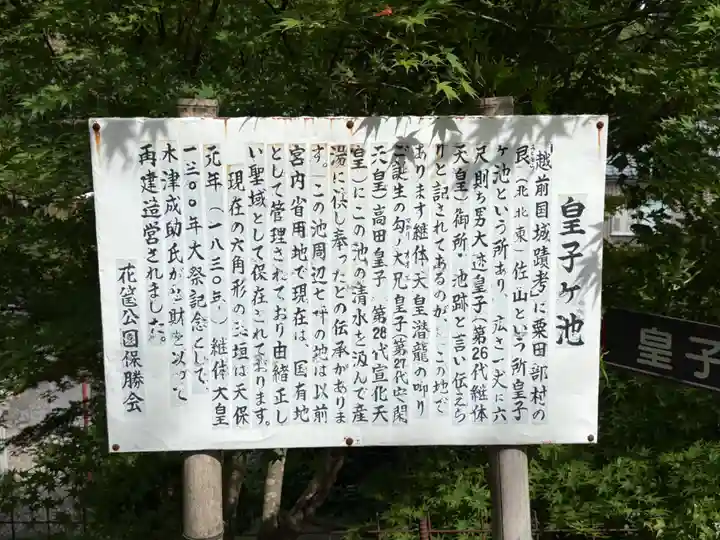 皇子ヶ池
「越前国城蹟考」に粟田部村の
艮（北北東）佐山という所皇子
ヶ池という所あり 広さ一丈に六
尺則ち男大迹皇子（第26代継体
天皇）御所ノ池跡と言い伝えら
りと記されてあるのが、この地で
あります継体天皇潜龍の御り
ご誕生の勾ノ大兄皇子（第27代安閑
天皇）高田皇子 第28代宣化天
皇）にこの池の清水を汲んで産
湯に供し奉ったとの伝承がありま
す。この池周辺七坪の地は以前
宮内省用地で現在は、国有地
として管理されており由緒正し
い聖域として保存されております。
現在の六角形の玉垣は天保
元年（一八三〇年）継体天皇
一三〇〇年大祭記念として、
木津成助氏が私財を以って
再建造営されました。
花筐公園保勝会
皇子